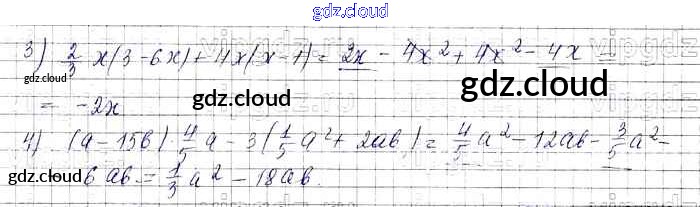 gdz.cloud
3) 2/3 x(3-6x)+4x(x-1)= 2x - 4x²+4x²-4x =
gdz.cloud
= -2x
gdz.cloud
gdz.cloud
4) (a-15b) 4/5 a - 3(1/5 a²+2ab)= 4/5 a²-12ab- 3/5 a²-
gdz.cloud 6ab= 1/3 a²-18ab.
gdz.cloud